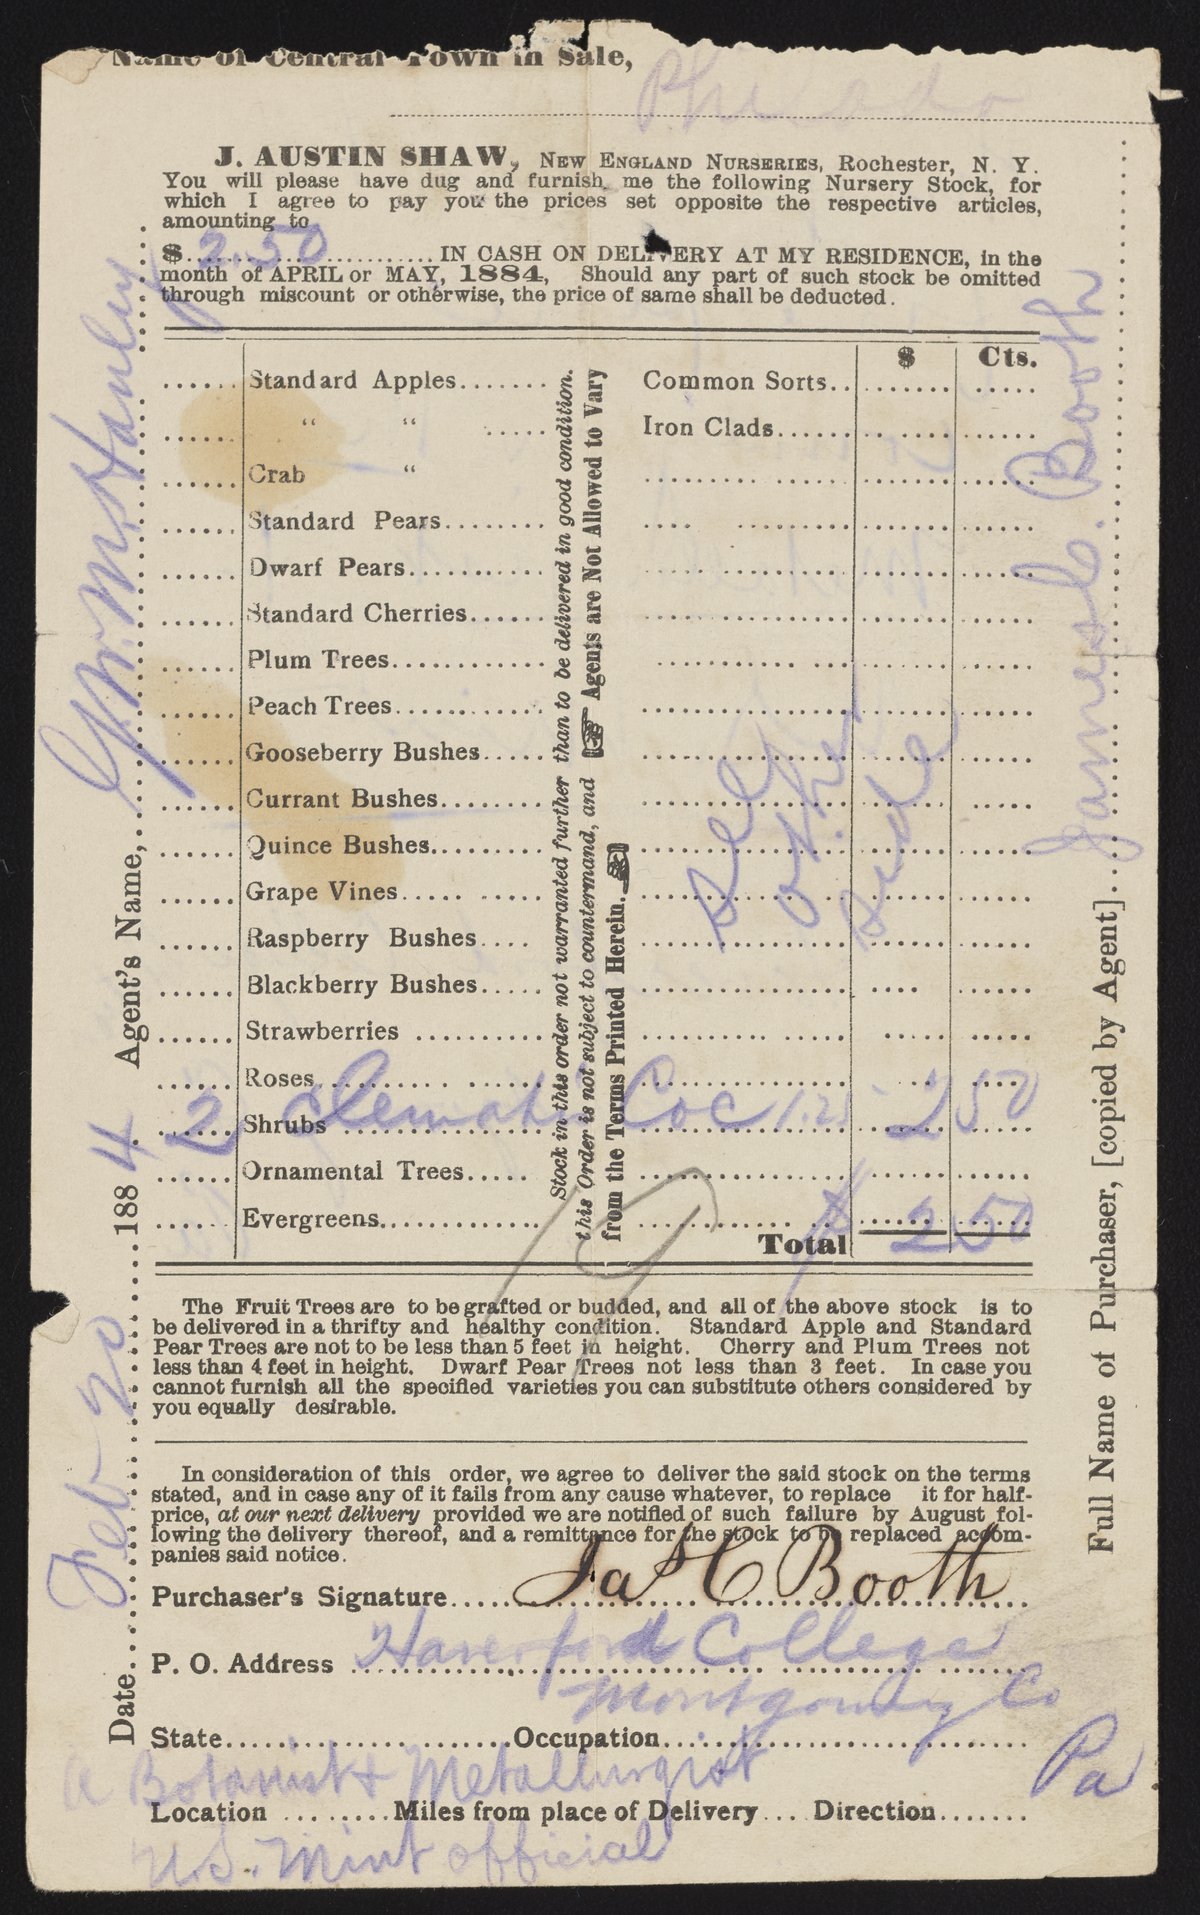 Name of Central Town in Sale,
J. AUSTIN SHAW, NEW ENGLAND NURSERIES, Rochester, N. Y.
You will please have dug and furnish me the following Nursery Stock, for
which I agree to pay you the prices set opposite the respective articles,
amounting to
$ 2.50 IN CASH ON DELIVERY AT MY RESIDENCE, in the
month of APRIL or MAY, 1884, Should any part of such stock be omitted
through miscount or otherwise, the price of same shall be deducted.
$ Cts.
Standard Apples....... Common Sorts..
“ “ ..... Iron Clads......
Crab “
Standard Pears........
Dwarf Pears..........
Standard Cherries......
Plum Trees............
Peach Trees...........
Gooseberry Bushes.....
Currant Bushes.........
Quince Bushes.........
Grape Vines...........
Raspberry Bushes....
Blackberry Bushes.....
Strawberries ..........
Roses.................
2 Shrubs Clematis Coc 1.25 2 50
Ornamental Trees.....
Evergreens............
Total $ 2 50
See
other
side
Stock in this order not warranted further than to be delivered in good condition.
this Order is not subject to countermand, and ☞ Agents are Not Allowed to Vary
from the Terms Printed Herein.
The Fruit Trees are to be grafted or budded, and all of the above stock is to
be delivered in a thrifty and healthy condition. Standard Apple and Standard
Pear Trees are not to be less than 5 feet in height. Cherry and Plum Trees not
less than 4 feet in height. Dwarf Pear Trees not less than 3 feet. In case you
cannot furnish all the specified varieties you can substitute others considered by
you equally desirable.
In consideration of this order, we agree to deliver the said stock on the terms
stated, and in case any of it fails from any cause whatever, to replace it for half-
price, at our next delivery provided we are notified of such failure by August fol-
lowing the delivery thereof, and a remittance for the stock to be replaced accom-
panies said notice.
Purchaser's Signature Jas C Booth
P. O. Address Haverford College
Montgomery Co
State Occupation
Pa
a Botanist & Metallurgist
Location ........Miles from place of Delivery.... Direction.......
U.S. Mint official
Date Feb 20 1884 Agent's Name, G. W. McHanley
Full Name of Purchaser, [copied by Agent] James C. Booth